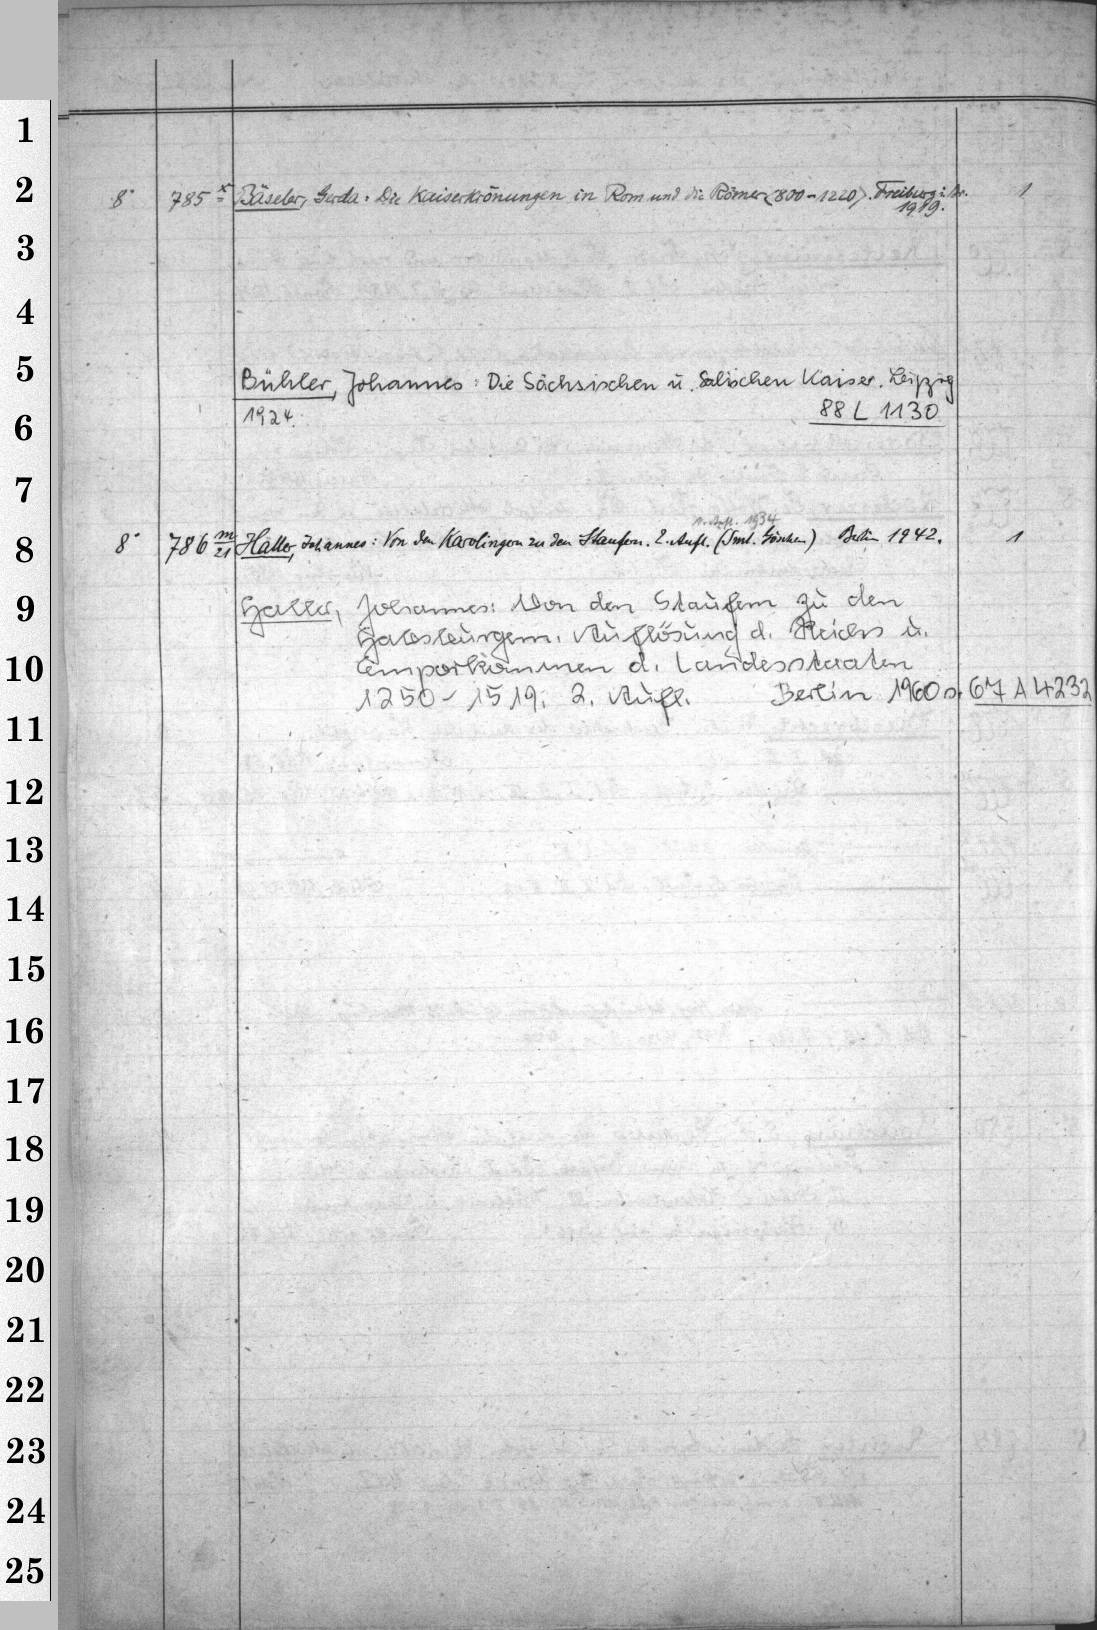 1
2
8° 785 x Bäseler, Gerda: Die Kaiserkrönungen in Rom und die Römer <800-1220>. Freiburg i. Br. 1
1919.
3
4
5
Bühler, Johannes: Die Sächsischen u. Salischen Kaiser. Leipzig
1924. 88 L 1130
6
7
1. Aufl. 1934
8
8° 786 m/21 Haller, Johannes: Von den Karolingern zu den Staufern. 2. Aufl. (Sml. Göschen) Berlin 1942. 1
9
Haller, Johannes: Von den Staufern zu den
Habsburgern. Auflösung d. Reichs u.
10
Emporkommen d. Landesstaaten
1250-1519. 2. Aufl. Berlin 1960. 67 A 4232
11
12
13
14
15
16
17
18
19
20
21
22
23
24
25